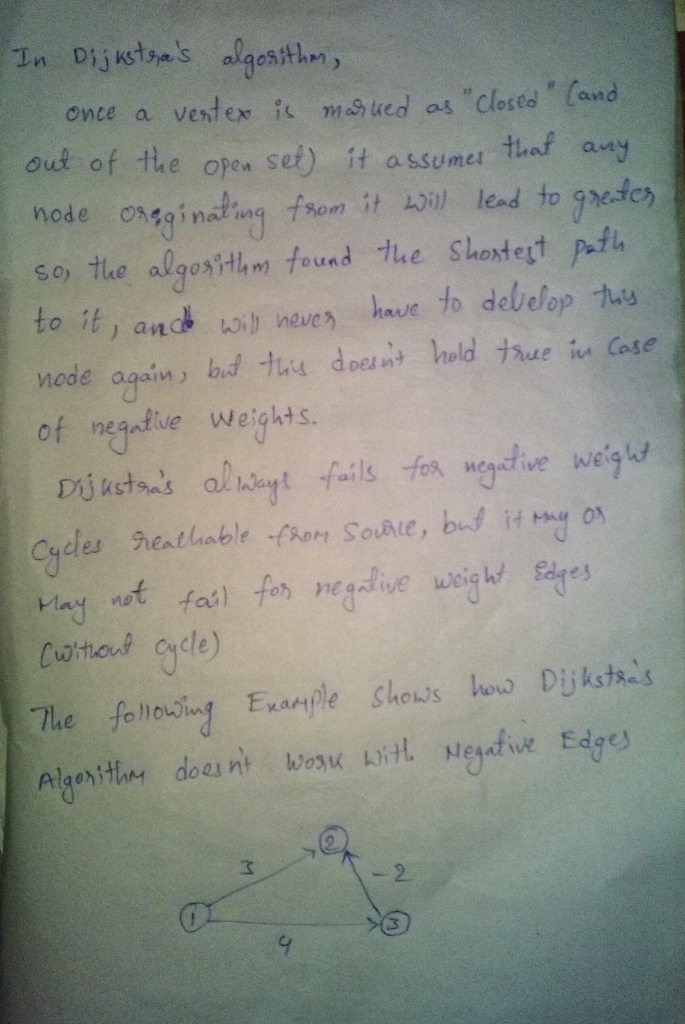 In Dijkstra's algorithm,
once a vertex is marked as "closed" (and
out of the open set) it assumes that any
node originating from it will lead to greater
so, the algorithm found the shortest path
to it, and will never have to develop this
node again, but this doesn't hold true in case
of negative weights.
Dijkstra's always fails for negative weight
cycles reachable from source, but it may or
may not fail for negative weight Edges
(without cycle)
The following Example shows how Dijkstra's
Algorithm doesn't work with Negative Edges
2
3
-2
1
3
4